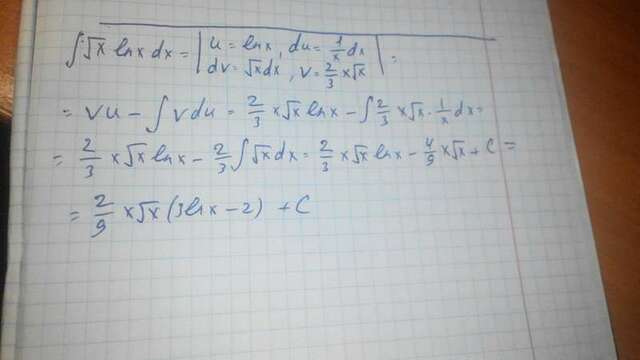 ∫√x ln x dx = | u = ln x, du = 1/x dx
dv = √x dx, v = 2/3 x√x | =
= vu − ∫ v du = 2/3 x√x ln x − ∫ 2/3 x√x · 1/x dx =
= 2/3 x√x ln x − 2/3 ∫ √x dx = 2/3 x√x ln x − 4/9 x√x + C =
= 2/9 x√x (3 ln x − 2) + C